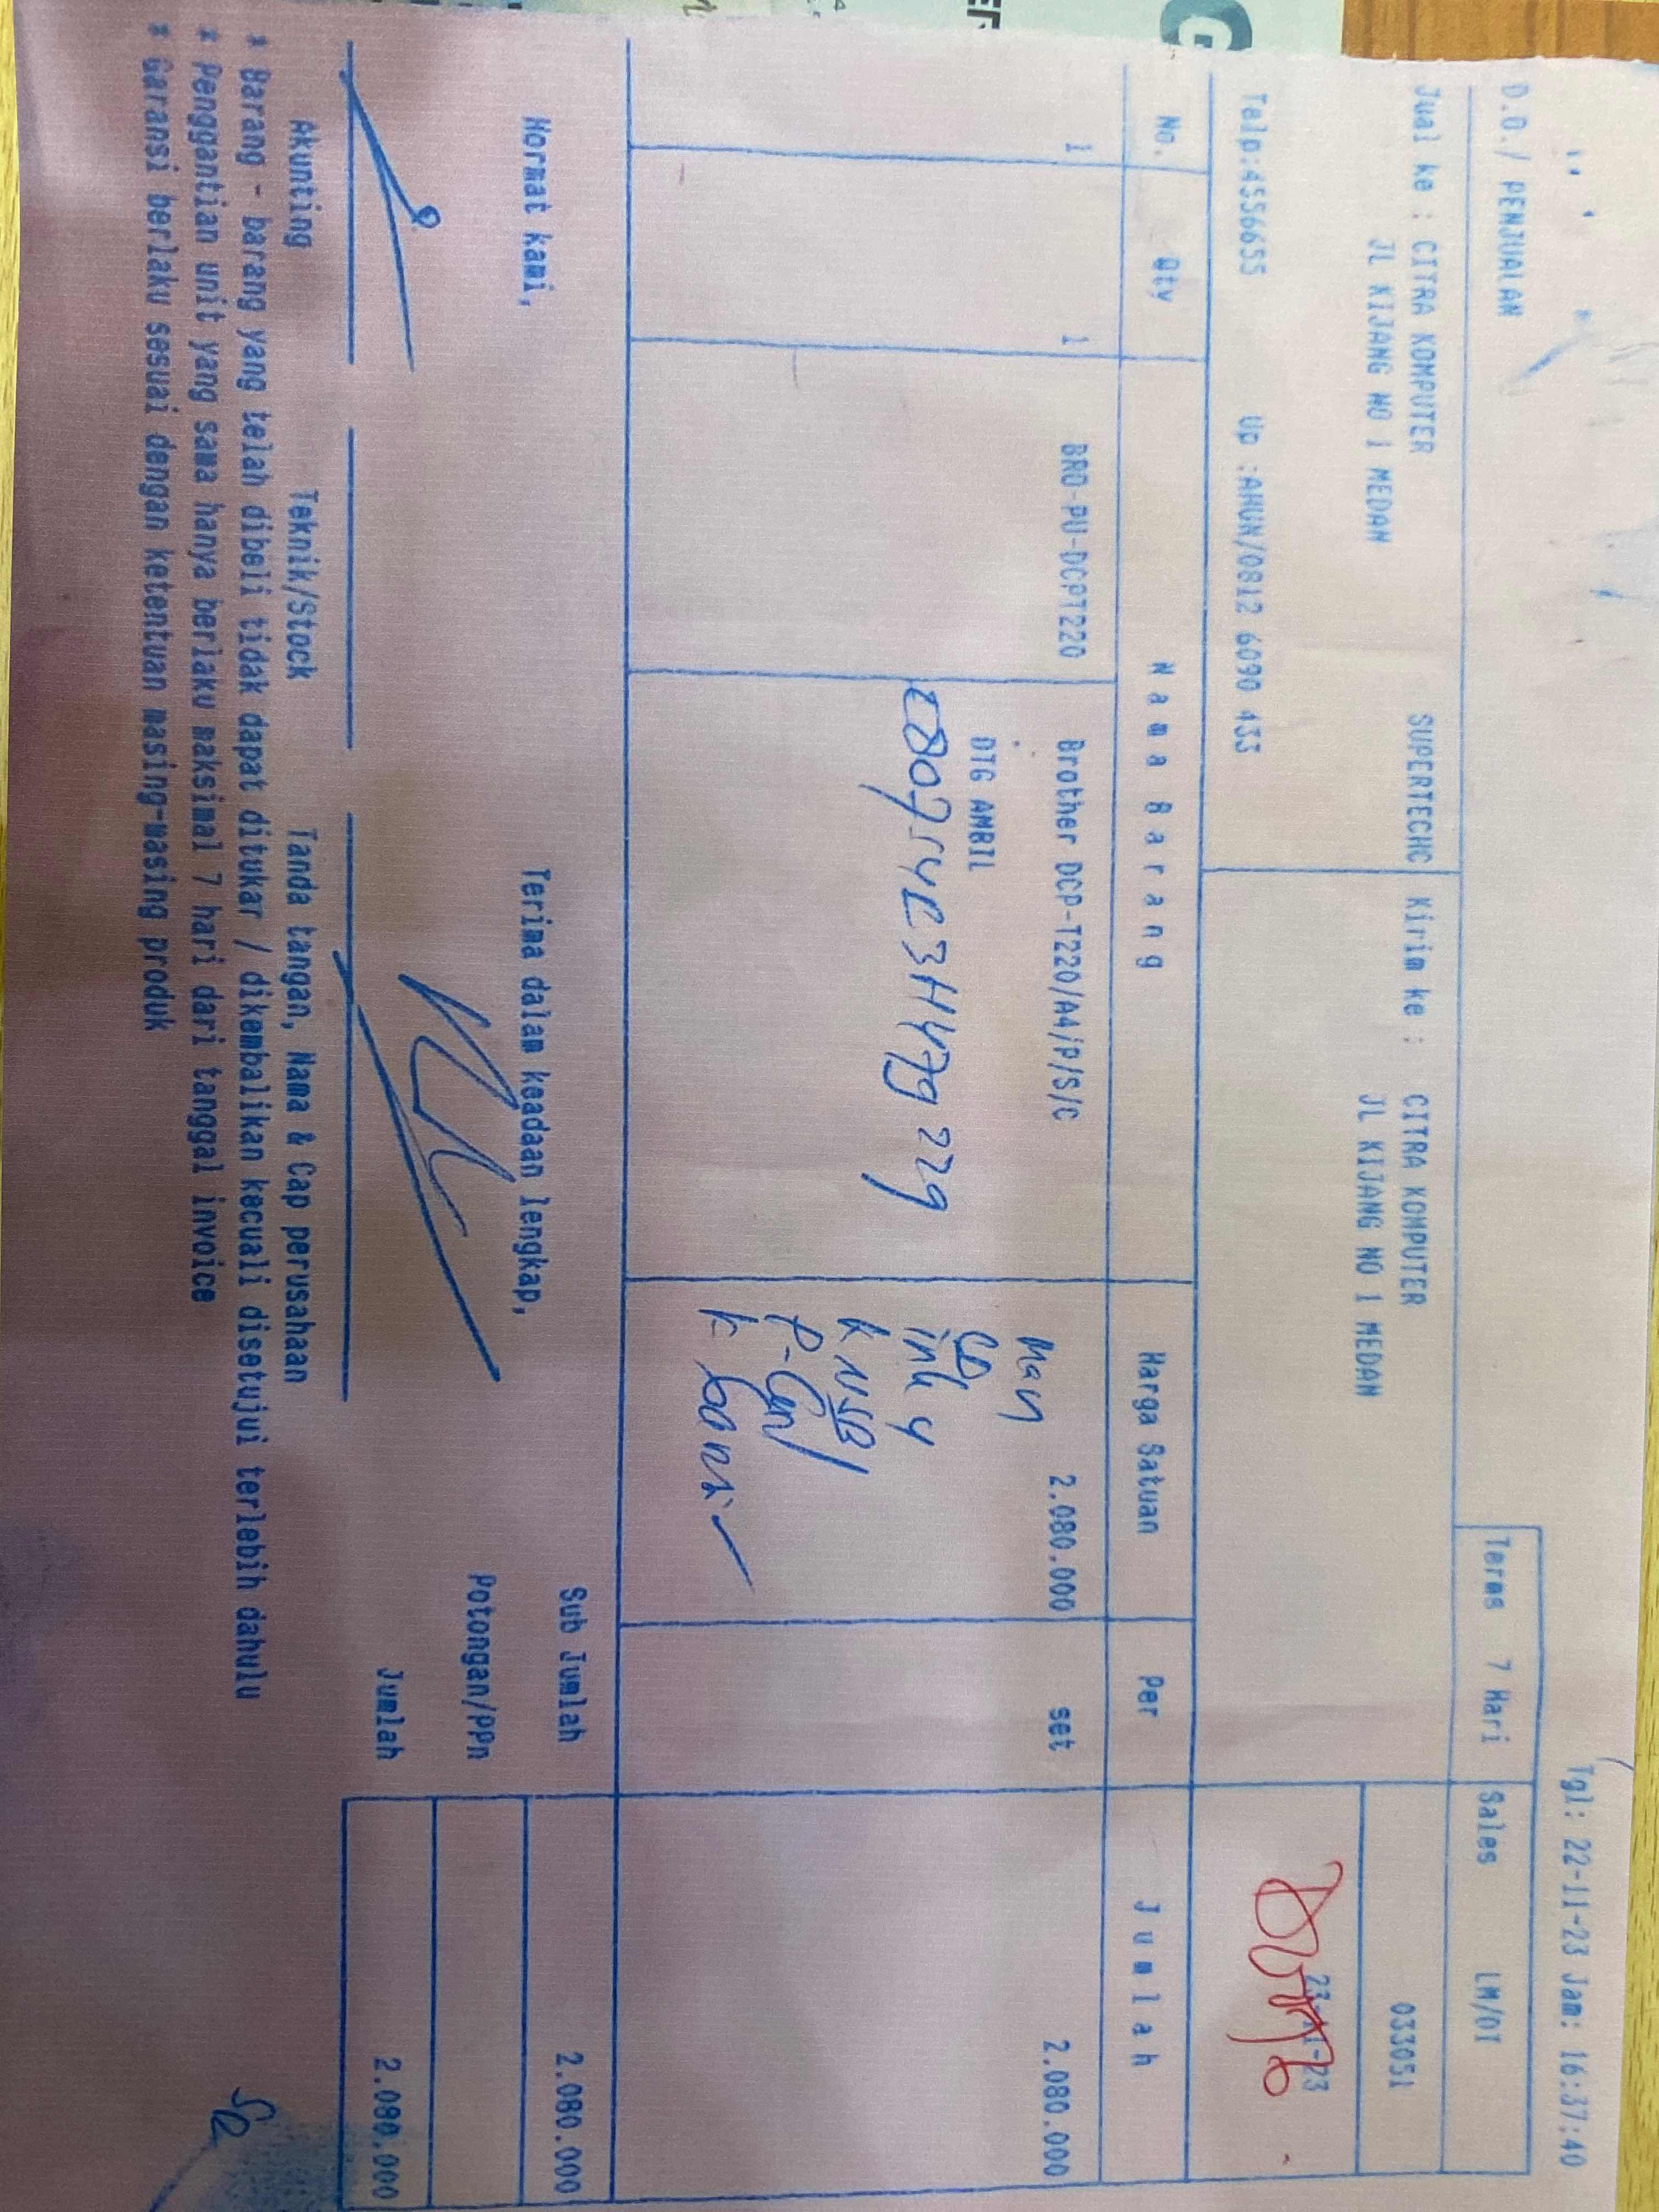 Tgl: 22-11-23 Jam: 16:37:40
D.O./ PENJUALAN
Terms 7 Hari Sales LM/OI
Jual ke : CITRA KOMPUTER SUPERTECHC Kirim ke : CITRA KOMPUTER 033051
JL KIJANG NO 1 MEDAN JL KIJANG NO 1 MEDAN
23-11-23
Telp:4556655 Up :AHUN/0812 6090 433
No. Qty Nama Barang Harga Satuan Per Jumlah
1 1 BRO-PU-DCPT220 Brother DCP-T220/A4/P/S/C 2.080.000 set 2.080.000
DTG AMBIL
Man
CD
ink 4
K USB
Sub Jumlah 2.080.000
Hormat kami, Terima dalam keadaan lengkap,
Potongan/PPn
Jumlah 2.080.000
Akunting Teknik/Stock Tanda tangan, Nama & Cap perusahaan
* Barang - barang yang telah dibeli tidak dapat ditukar / dikembalikan kecuali disetujui terlebih dahulu
* Penggantian unit yang sama hanya berlaku maksimal 7 hari dari tanggal invoice
* Garansi berlaku sesuai dengan ketentuan masing-masing produk